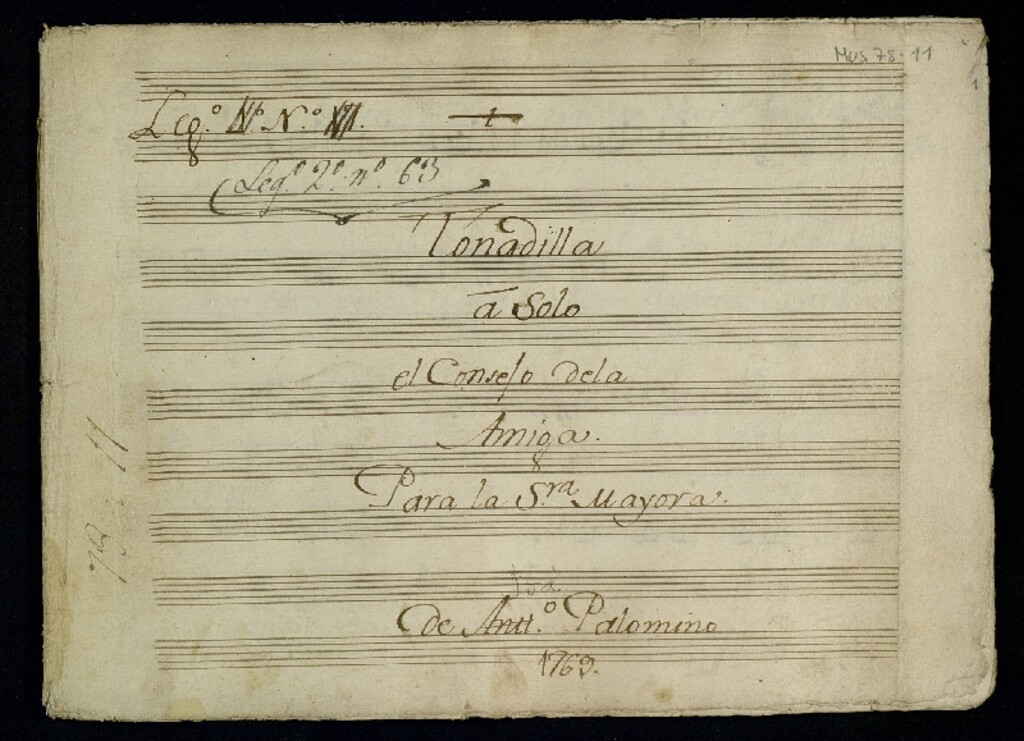 Mus 78-11
1
Leg.º N.º
Leg.º 2º nº. 63
Tonadilla
a Solo
el Consejo dela
Amiga.
Para la S.ra Mayora.
de Antt.º Palomino
1769.